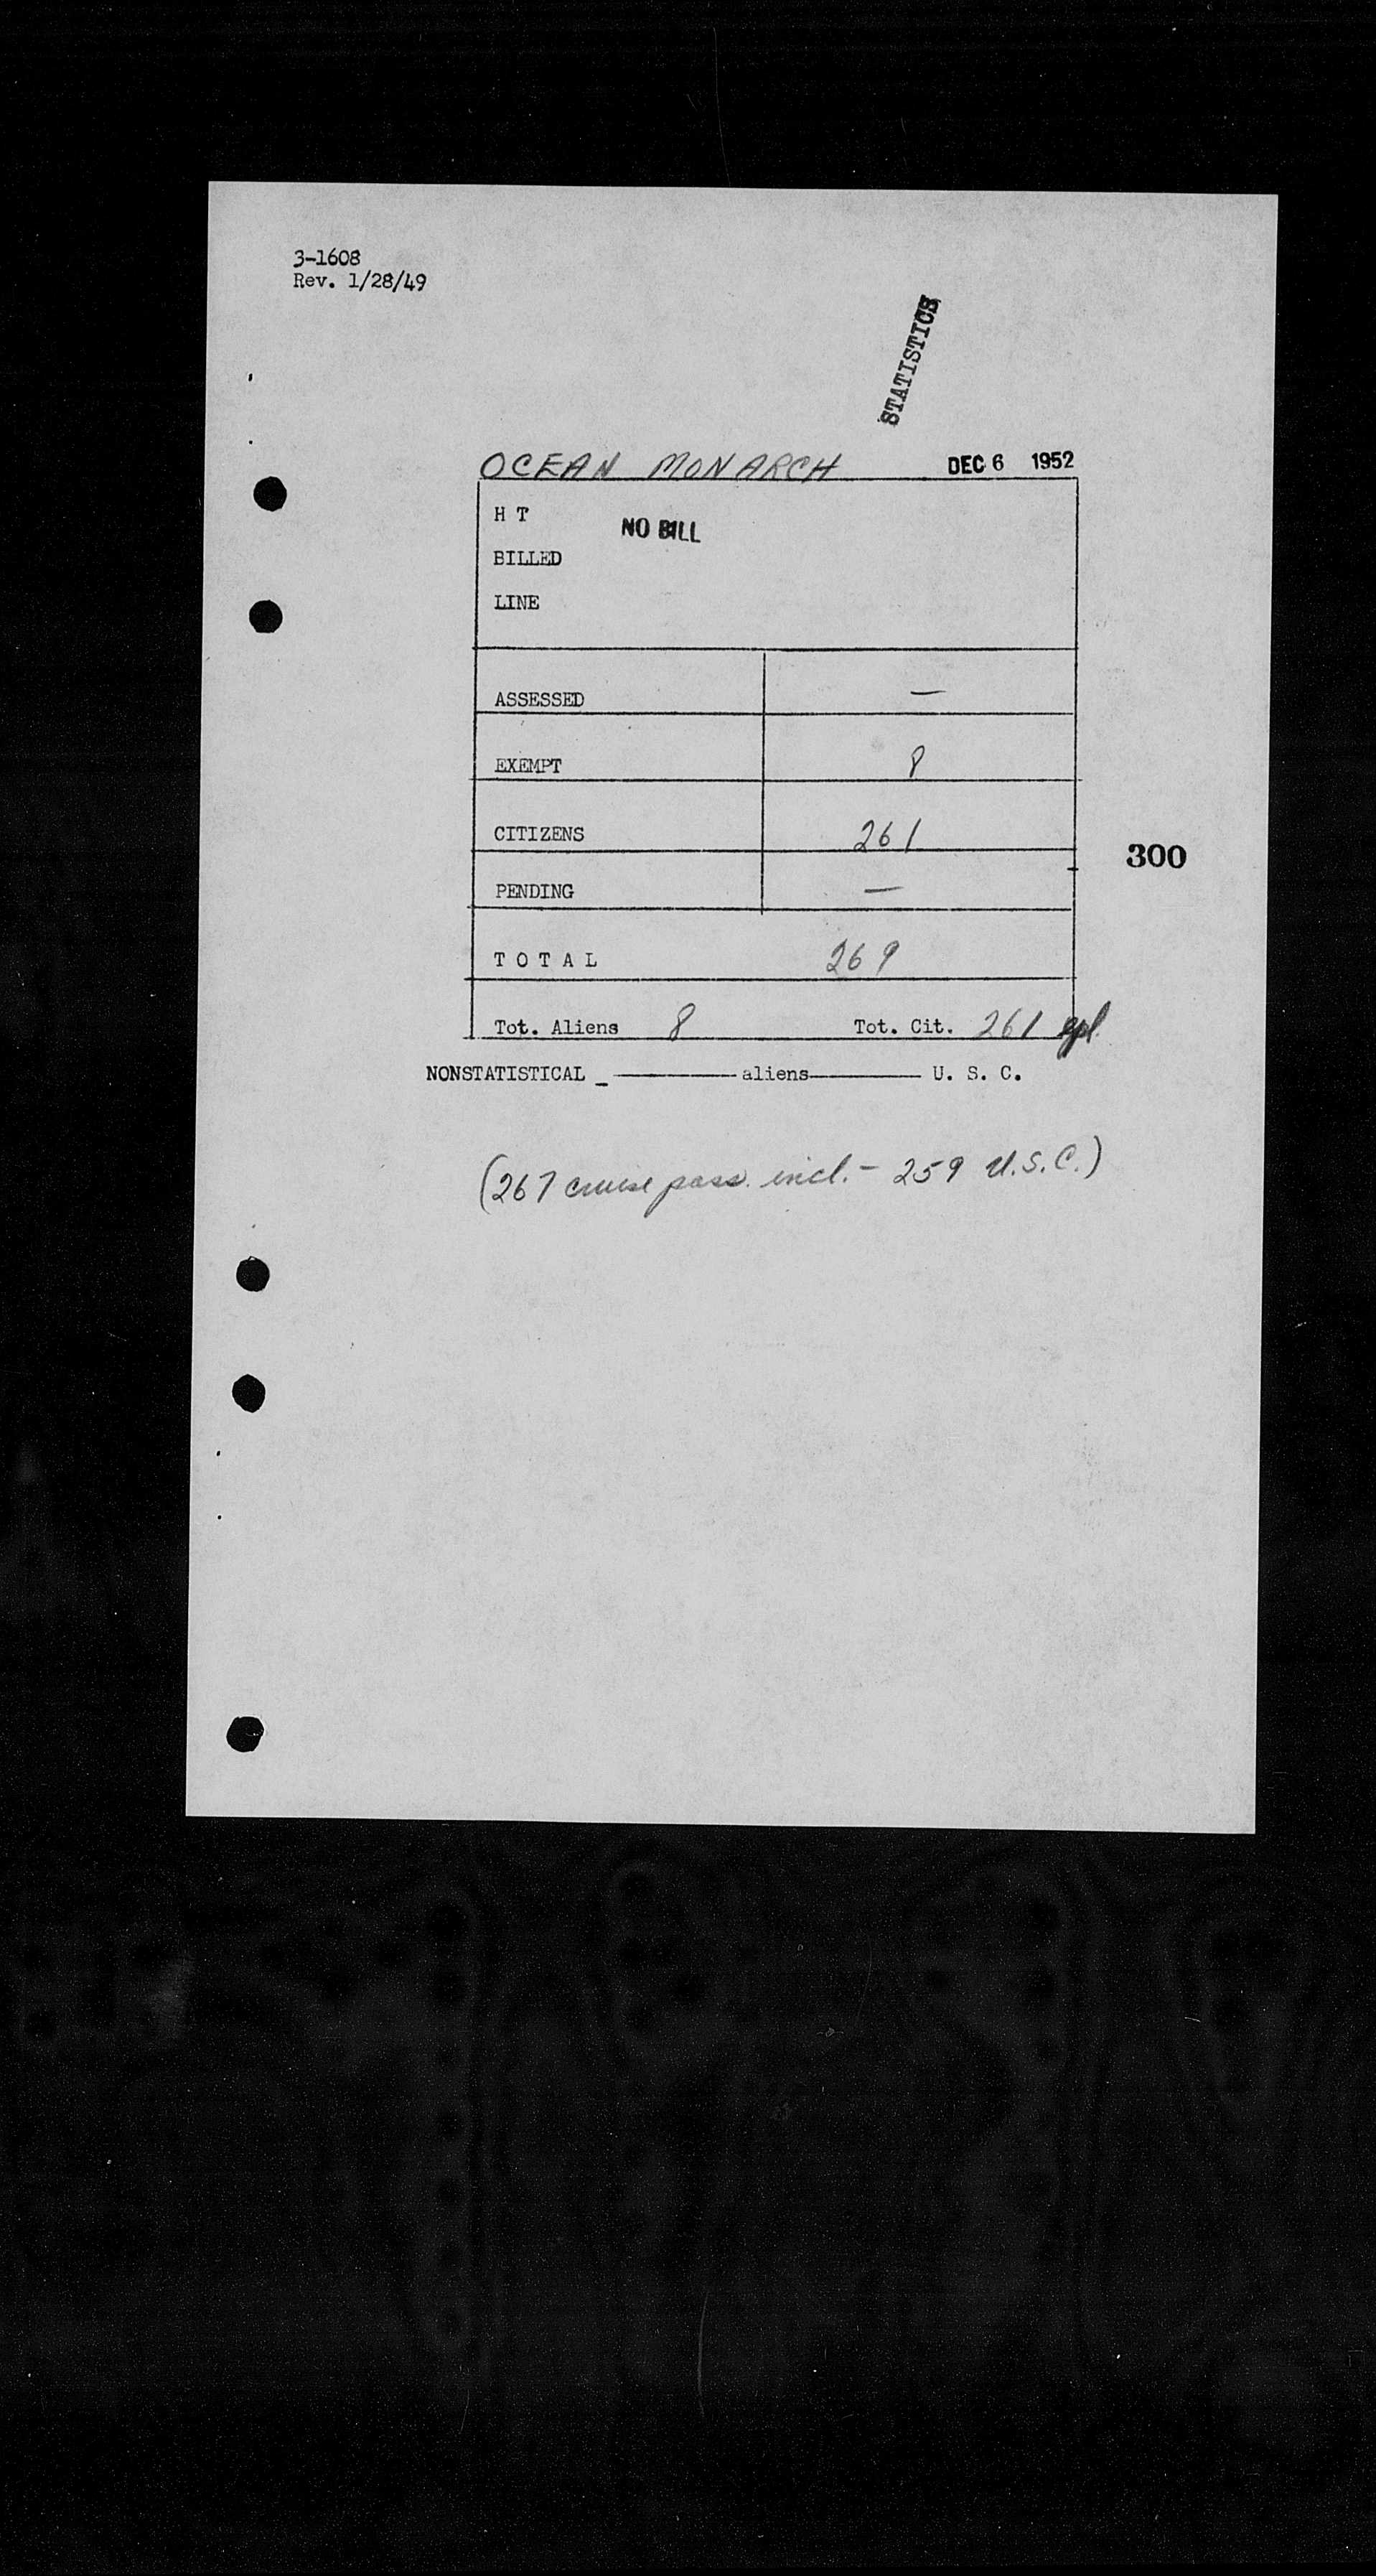 3-1608
Rev. 1/28/49
STATISTICS
OCEAN MONARCH DEC 6 1952
H T
NO BILL
BILLED
LINE
ASSESSED —
EXEMPT 8
CITIZENS 261
300
PENDING —
T O T A L 269
Tot. Aliens 8 Tot. Cit. 261
NONSTATISTICAL _ ———— aliens ———— U. S. C.
(267 cruise pass. incl. - 259 U.S.C.)